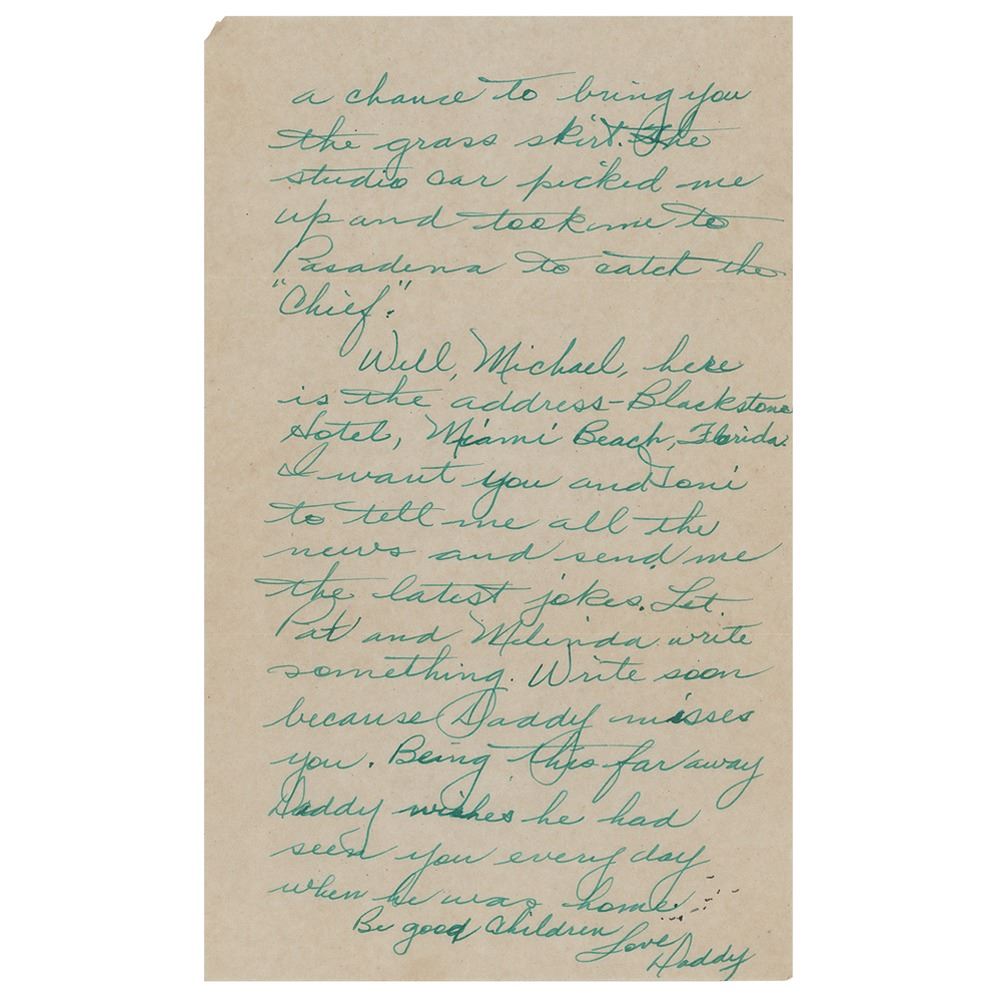 a chance to bring you
the grass skirt. The
studio car picked me
up and took me to
Pasadena to catch the
"Chief".
Well, Michael, here
is the address - Blackstone
Hotel, Miami Beach, Florida.
I want you and Toni
to tell me all the
news and send me
the latest jokes. Let
Pat and Melinda write
something. Write soon
because Daddy misses
you. Being this far away
Daddy wishes he had
seen you every day
when he was home.
Be good children
Love
Daddy